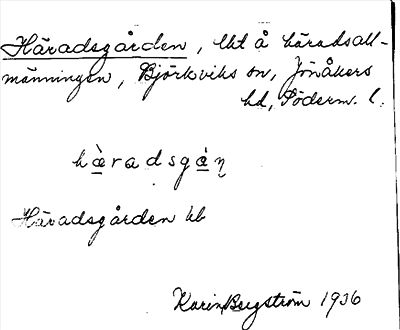 Häradsgården, lht å häradsall-
männingen, Björkviks sn, Jönåkers
hd, Söderm. l.
hæ̀radsgȧ̀ṇ
Häradsgården kb
Karin Bergström 1936